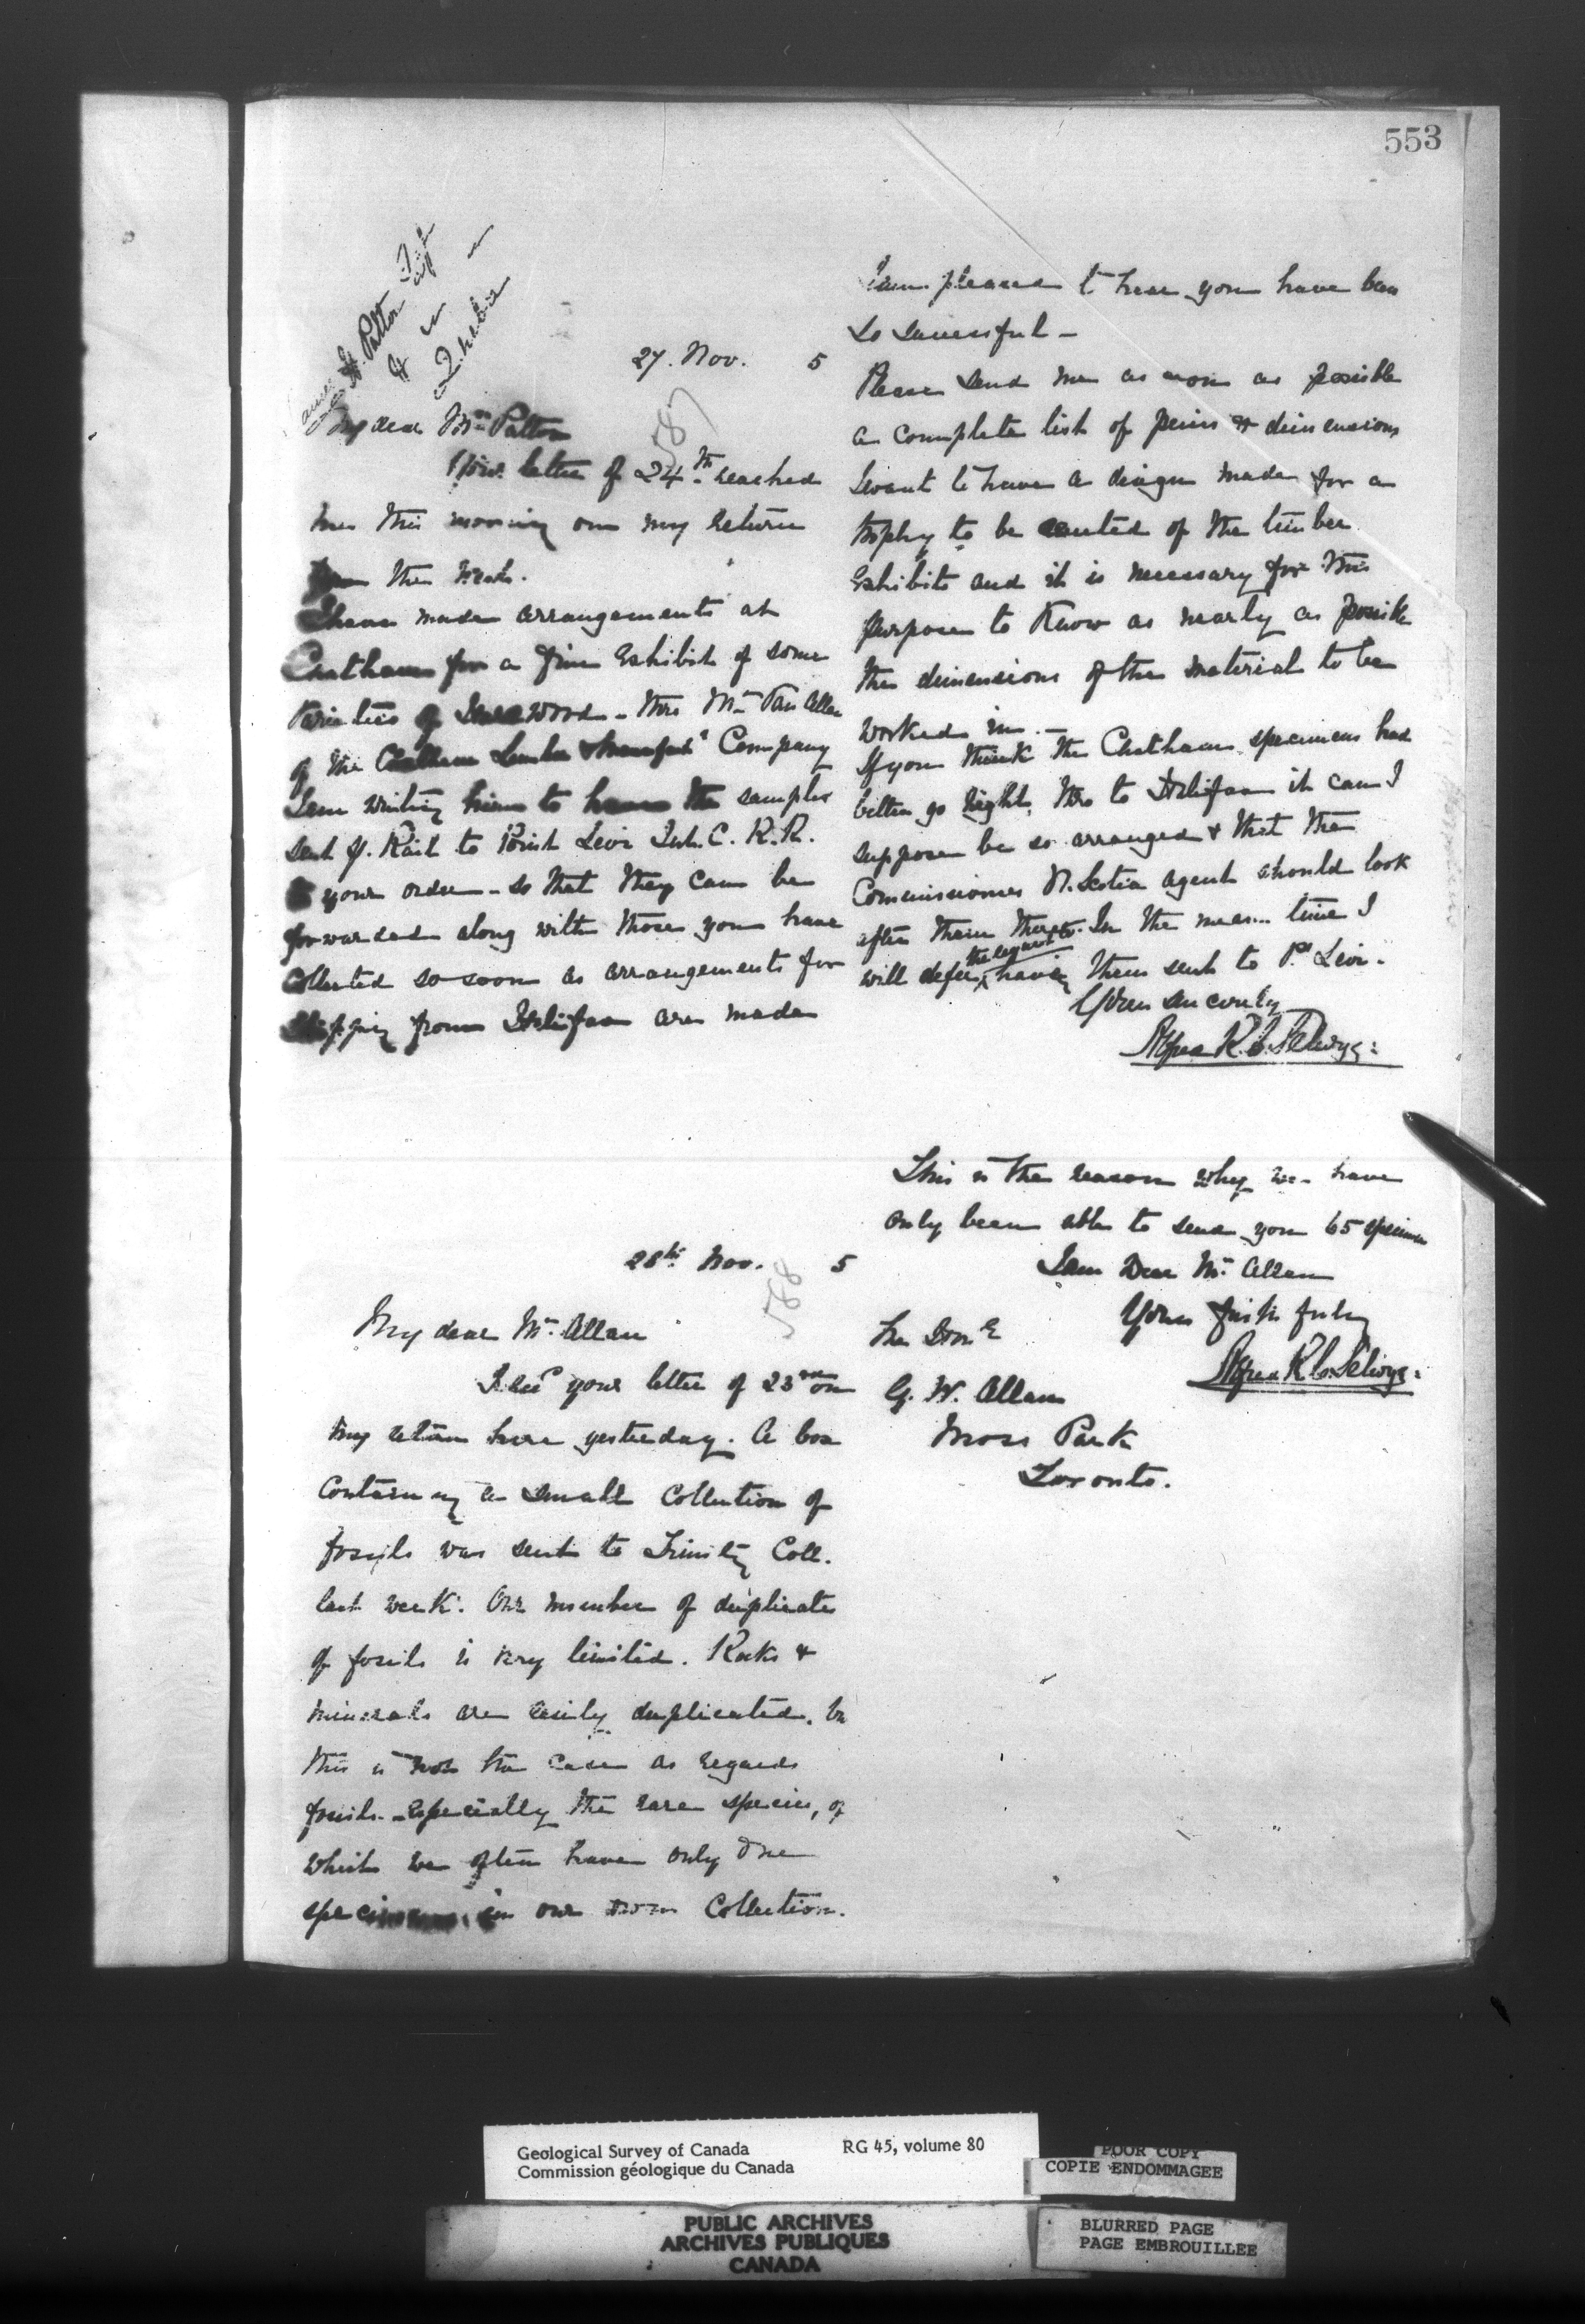 553
James H. Patton
Quebec
27. Nov. 5
587
My dear Mr. Patton
Your letter of 24th reached
me this morning on my return
from the West.
I have made arrangements at
Chatham for a fine Exhibit of some
varieties of wood - thro Mr Van Allen
of the Chatham Company
I am writing him to have the samples
sent p. Rail to Point Levi Int. C. R. R.
to your order - so that they can be
forwarded along with those you have
collected so soon as arrangements for
shipping from Halifax are made
I am pleased to hear you have been
so successful -
Please send me as soon as possible
a complete list of pieces & dimensions
I want to have a design made for a
trophy to be erected of the timber
Exhibits and it is necessary for this
purpose to know as nearly as possible
the dimensions of the material to be
worked in. -
If you think the Chatham specimens had
better go right thro to Halifax it can I
suppose be so arranged & that the
Commissioners N. Scotia agent should look
after them there. In the mean time I
will defer having them sent to Pt. Levi.
Yours sincerely
Alfred R. C. Selwyn
28th Nov. 5
588
My dear Mr. Allan
I recd your letter of 23rd on
my return here yesterday. A box
containing a small collection of
fossils was sent to Trinity Coll.
last week. Our number of duplicates
of fossils is very limited. Rocks &
minerals are easily duplicated, but
this is not the case as regards
fossils - especially the rare species, of
which we often have only one
specimen in our own Collection.
This is the reason why we have
only been able to send you 65 specimens
I am Dear Mr. Allan
Yours faithfully
Alfred R. C. Selwyn
The Honble
G. W. Allan
Moss Park
Toronto.
Geological Survey of Canada RG 45, volume 80
Commission géologique du Canada
POOR COPY
COPIE ENDOMMAGEE
PUBLIC ARCHIVES
ARCHIVES PUBLIQUES
CANADA
BLURRED PAGE
PAGE EMBROUILLEE